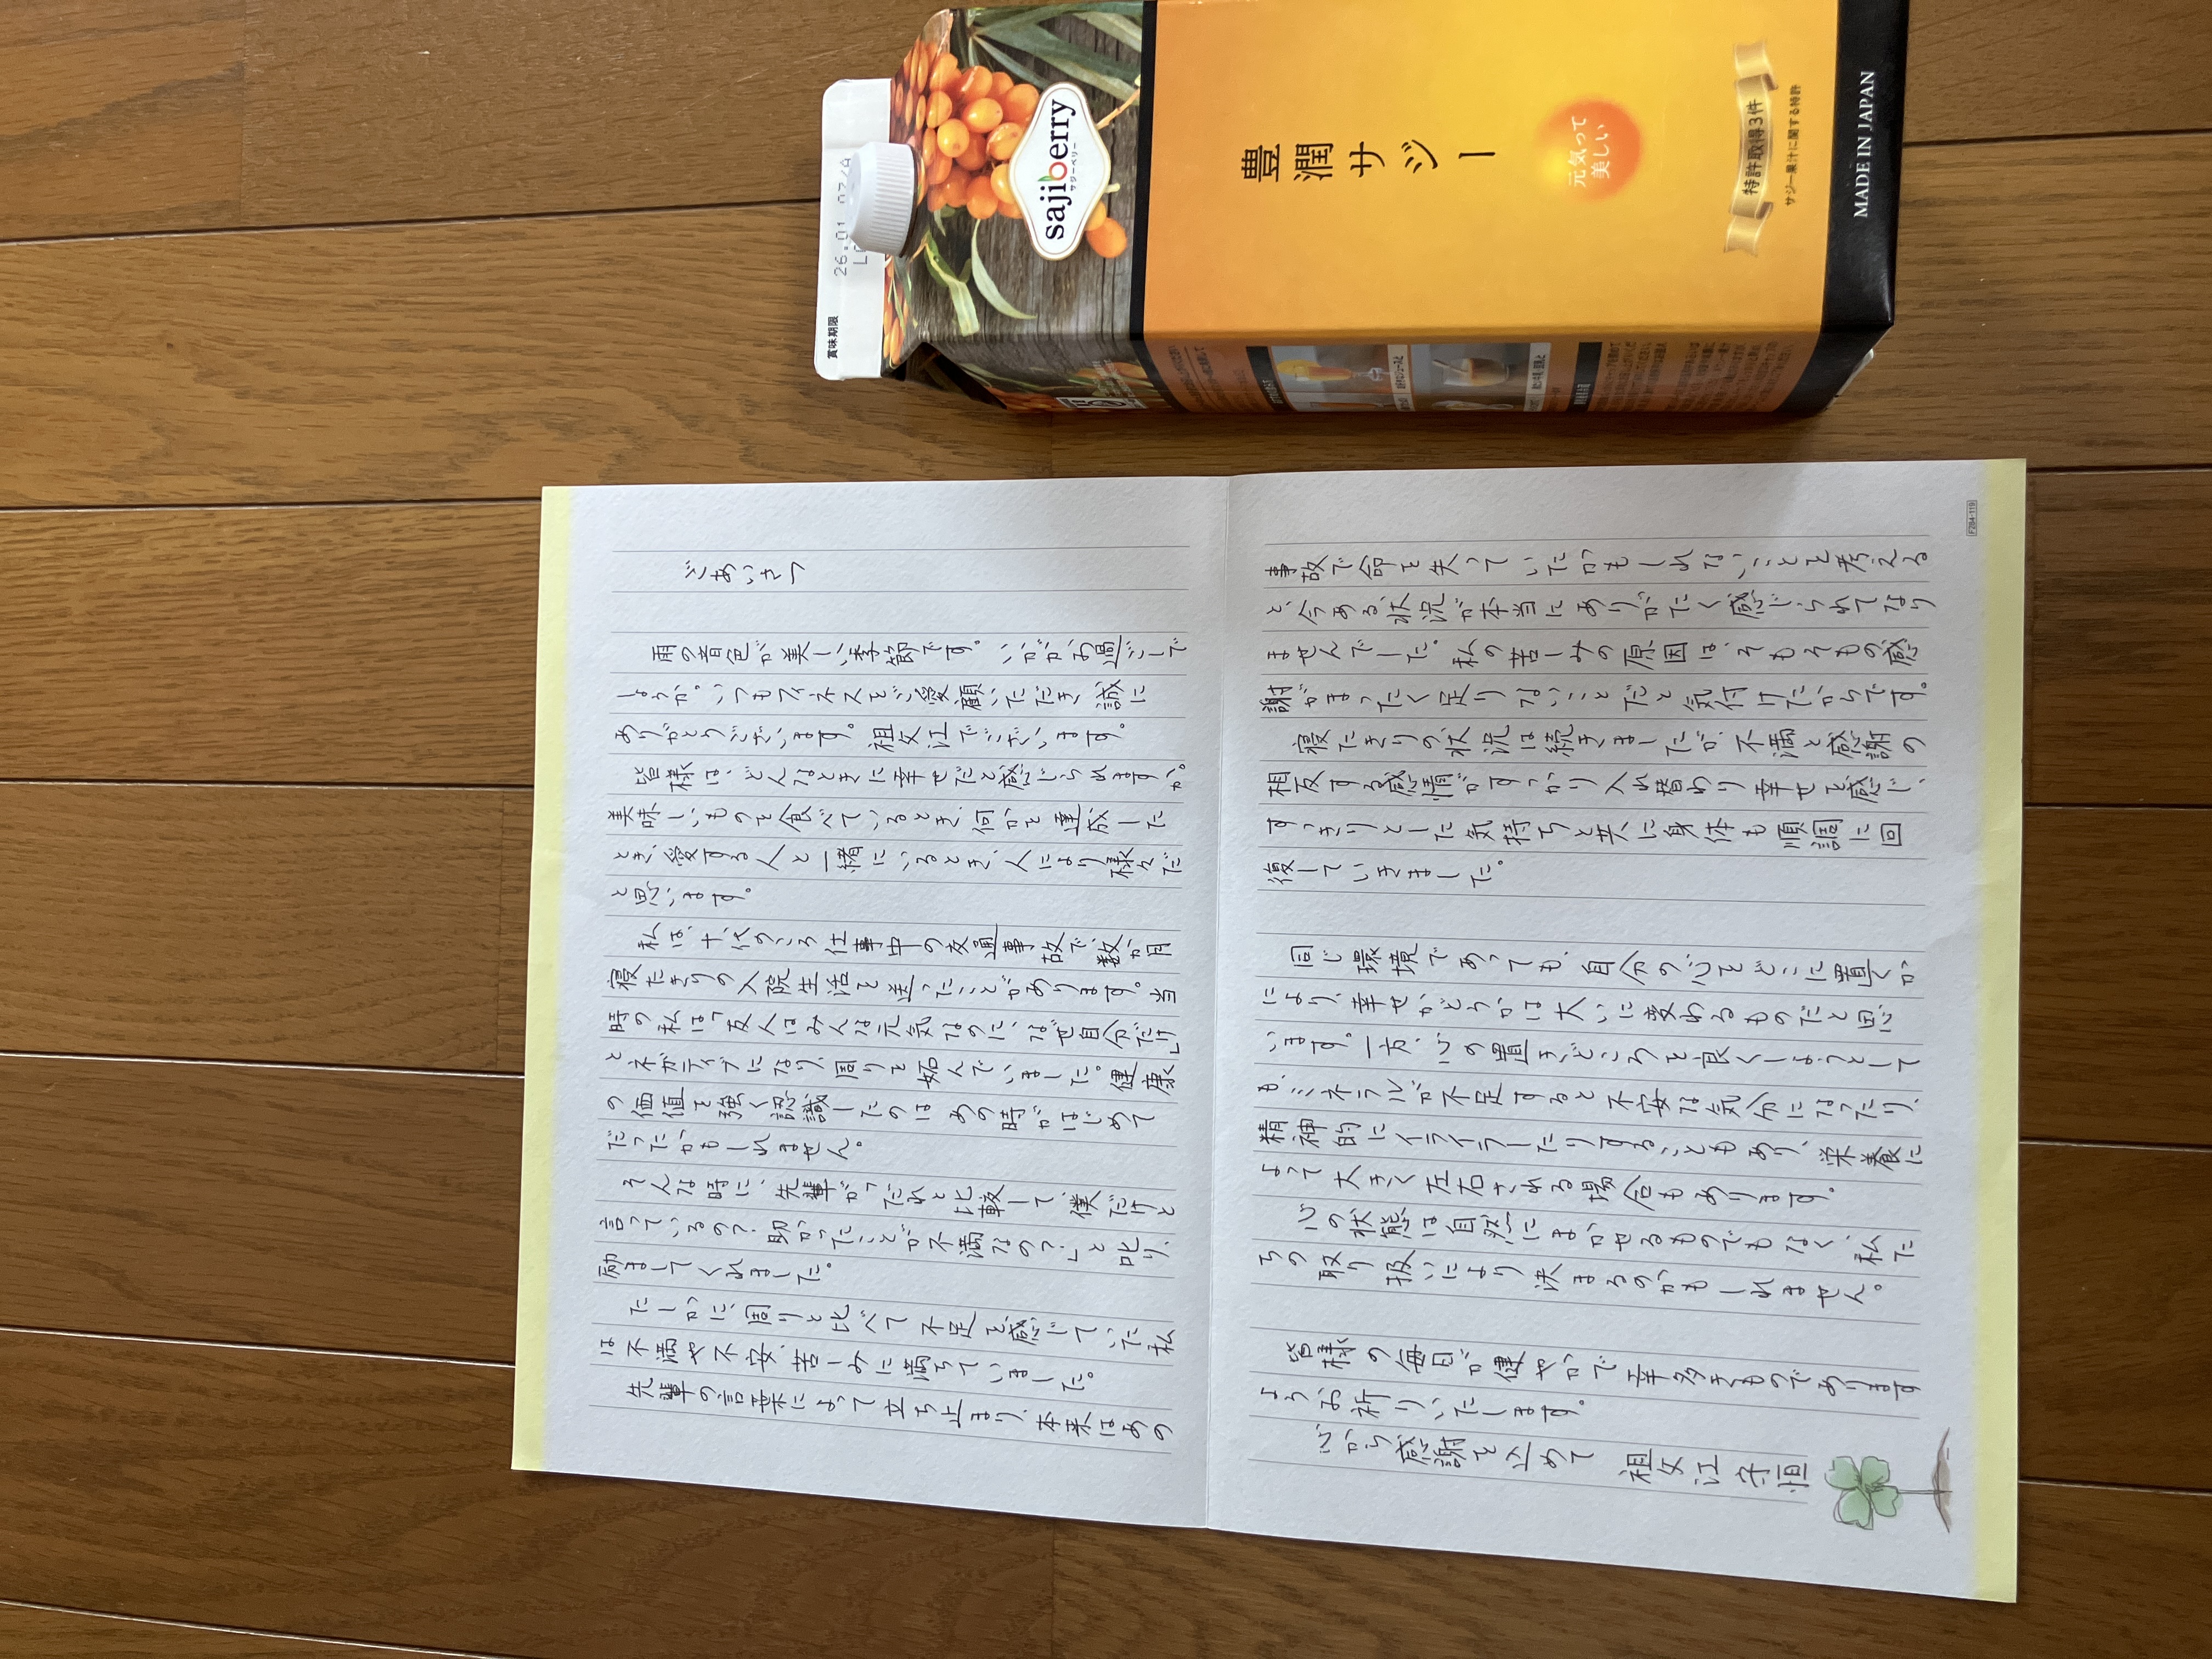 賞味期限
26.01.07/A
sajiberry
サジーベリー
豊潤サジー
元気って
美しい
特許取得3件
サジー果汁に関する特許
MADE IN JAPAN
ごあいさつ
雨の音色が美しい季節です。いかがお過ごしで
しょうか。いつもフィネスをご愛顧いただき、誠に
ありがとうございます。祖父江でございます。
皆様は、どんなときに幸せだと感じられますか。
美味しいものを食べているとき、何かを達成した
とき、愛する人と一緒にいるとき、人により様々だ
と思います。
私は、十代のころ仕事中の交通事故で、数か月
寝たきりの入院生活を送ったことがあります。当
時の私は「友人はみんな元気なのに、なぜ自分だけ」
とネガティブになり、周りを妬んでいました。健康
の価値を強く認識したのはあの時がはじめて
だったかもしれません。
そんな時に、先輩が「だれと比較して、僕だけと
言っているの?助かったことが不満なの?」と叱り、
励ましてくれました。
たしかに、周りと比べて不足を感じていた私
は不満や不安、苦しみに満ちていました。
先輩の言葉によって立ち止まり、本来はあの
事故で命を失っていたかもしれないことを考える
と、今ある状況が本当にありがたく感じられてなり
ませんでした。私の苦しみの原因は、そもそもの感
謝がまったく足りないことだと気付けたからです。
寝たきりの状況は続きましたが、不満と感謝の
相反する感情がすっかり入れ替わり幸せを感じ、
すっきりとした気持ちと共に身体も順調に回
復していきました。
同じ環境であっても、自分の心をどこに置くか
により、幸せかどうかは大いに変わるものだと思
います。一方、心の置きどころを良くしようとして
も、ミネラルが不足すると不安な気分になったり、
精神的にイライラしたりすることもあり、栄養に
よって大きく左右される場合もあります。
心の状態は自然にまかせるものでもなく、私た
ちの取り扱いにより決まるのかもしれません。
皆様の毎日が健やかで幸多きものであります
ようお祈りいたします。
心から感謝を込めて 祖父江 守恒
FZB4-119